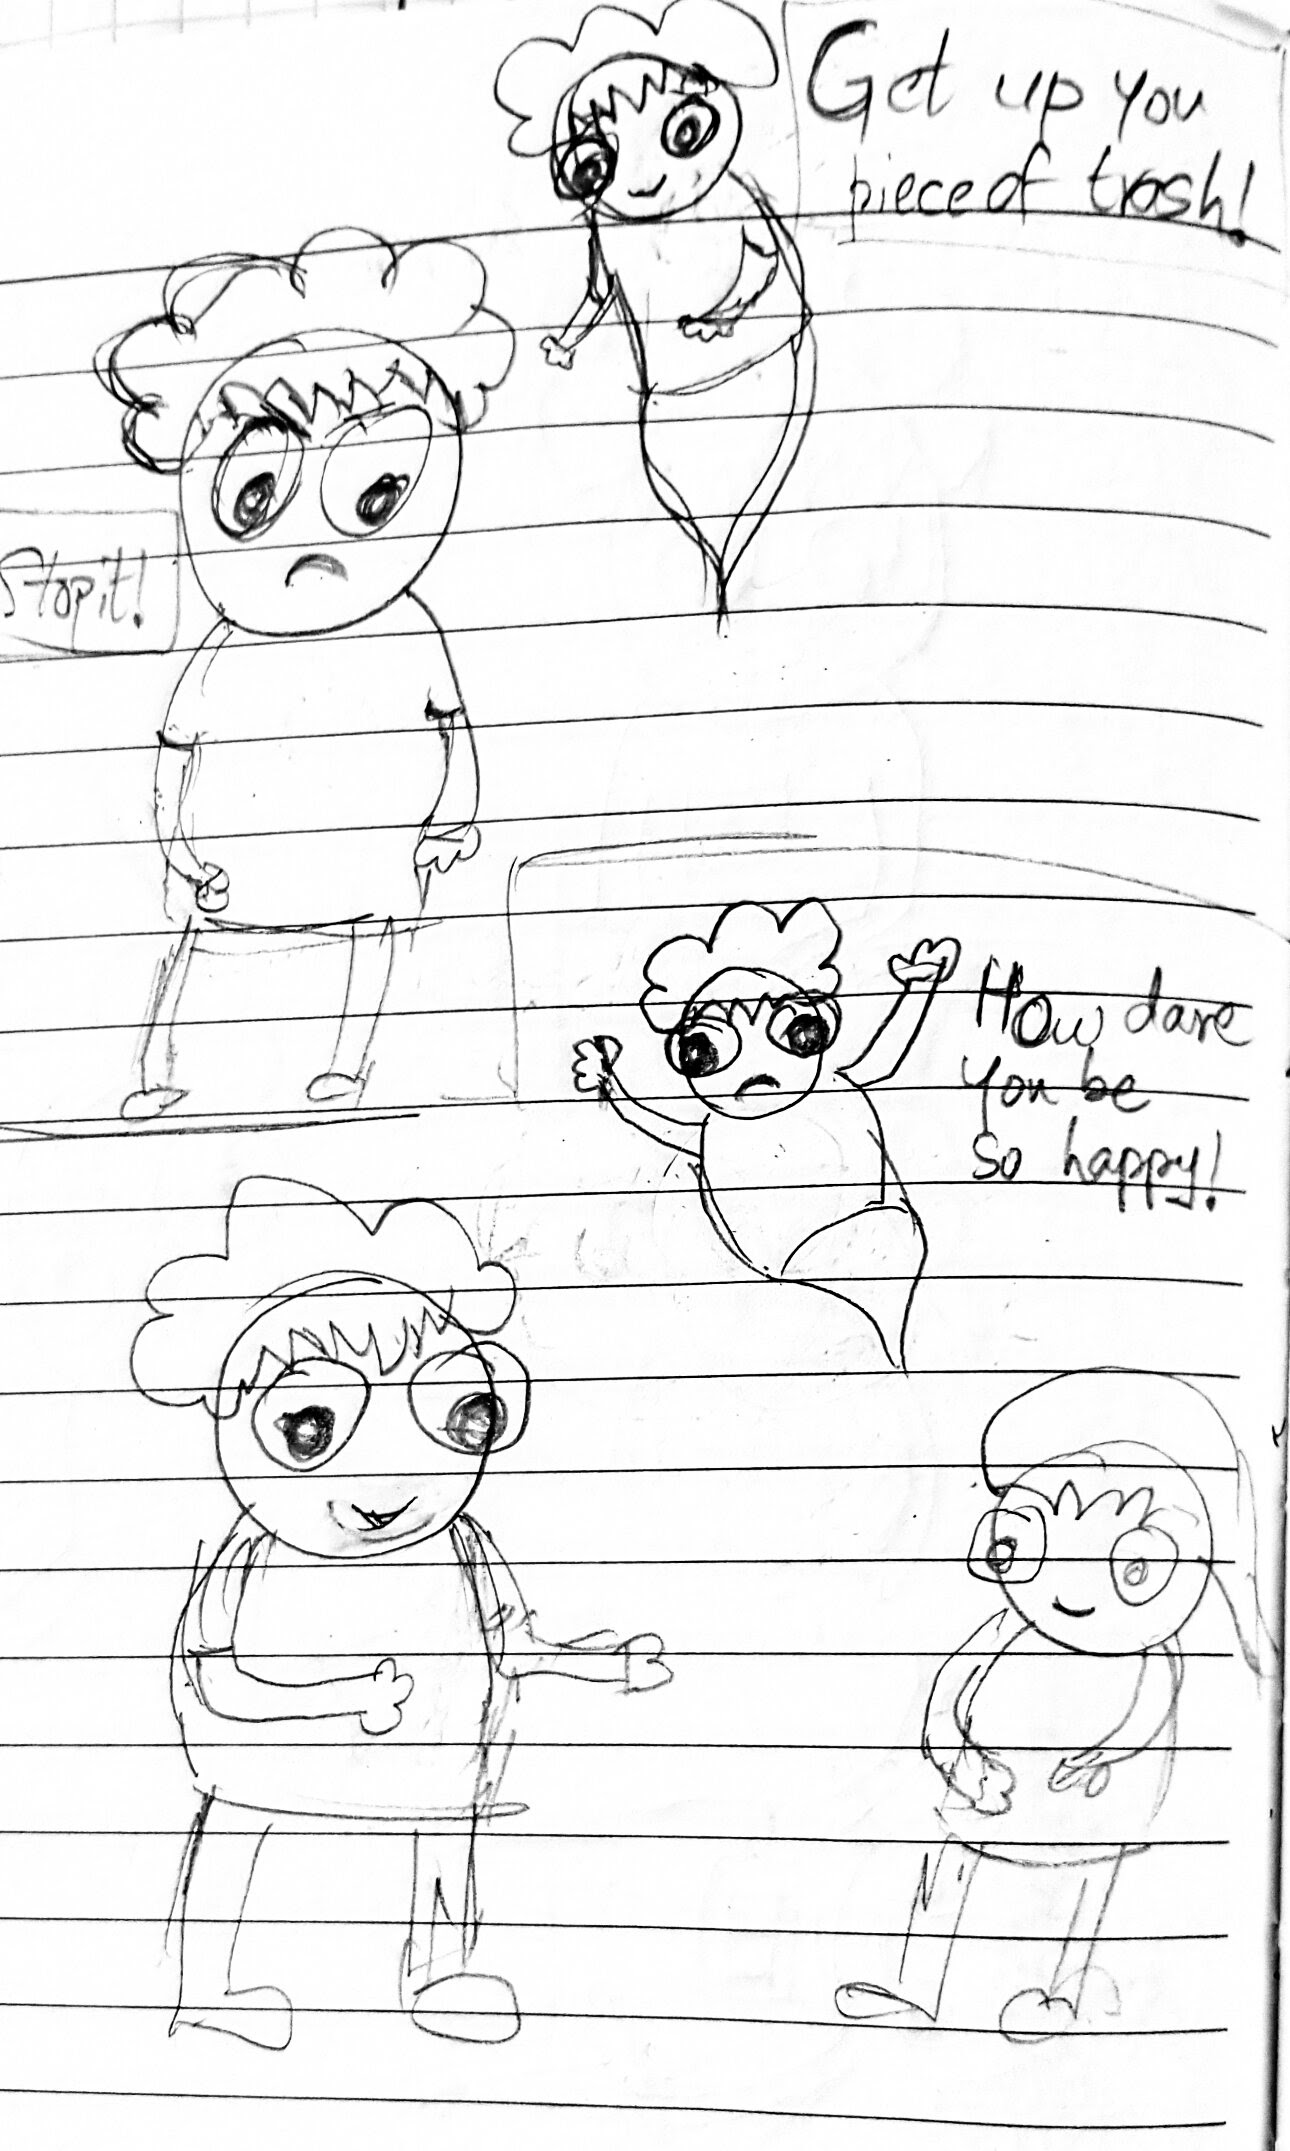 Get up you
piece of trash!
Stop it!
How dare
you be
so happy!